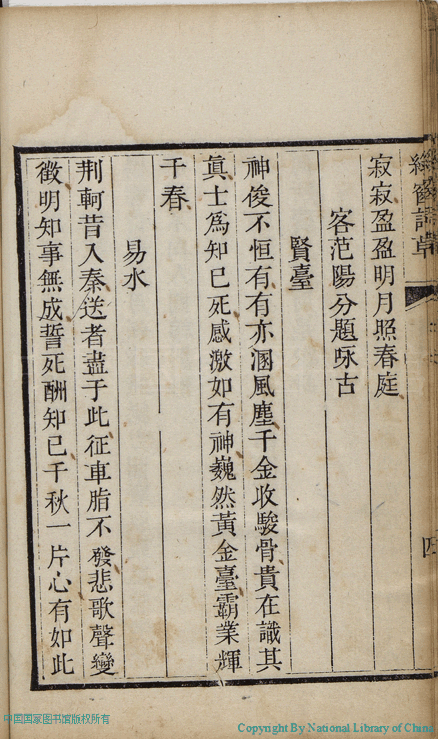 寂寂盈盈明月照春庭
客范陽分題咏古
賢臺
神俊不恒有有亦溷風塵千金收駿骨貴在識其
眞士爲知巳死感激如有神巍然黃金臺霸業輝
千春
易水
荆軻昔入秦送者盡于此征車脂不發悲歌聲變
徵明知事無成誓死酬知巳千秋一片心有如此
中国国家图书馆版权所有
Copyright By National Library of China